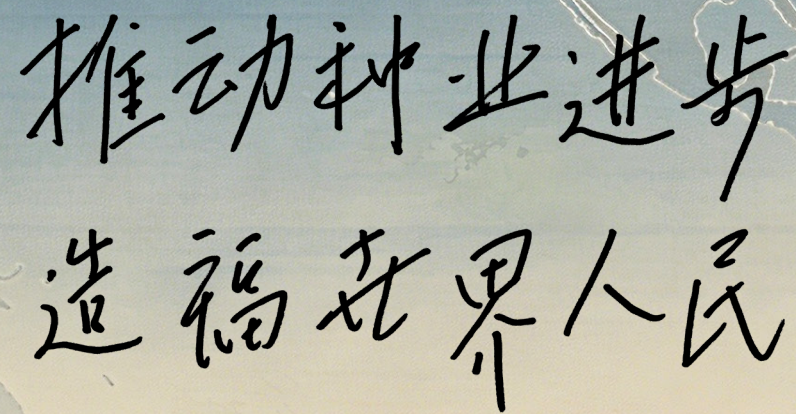 推动种业进步
造福世界人民